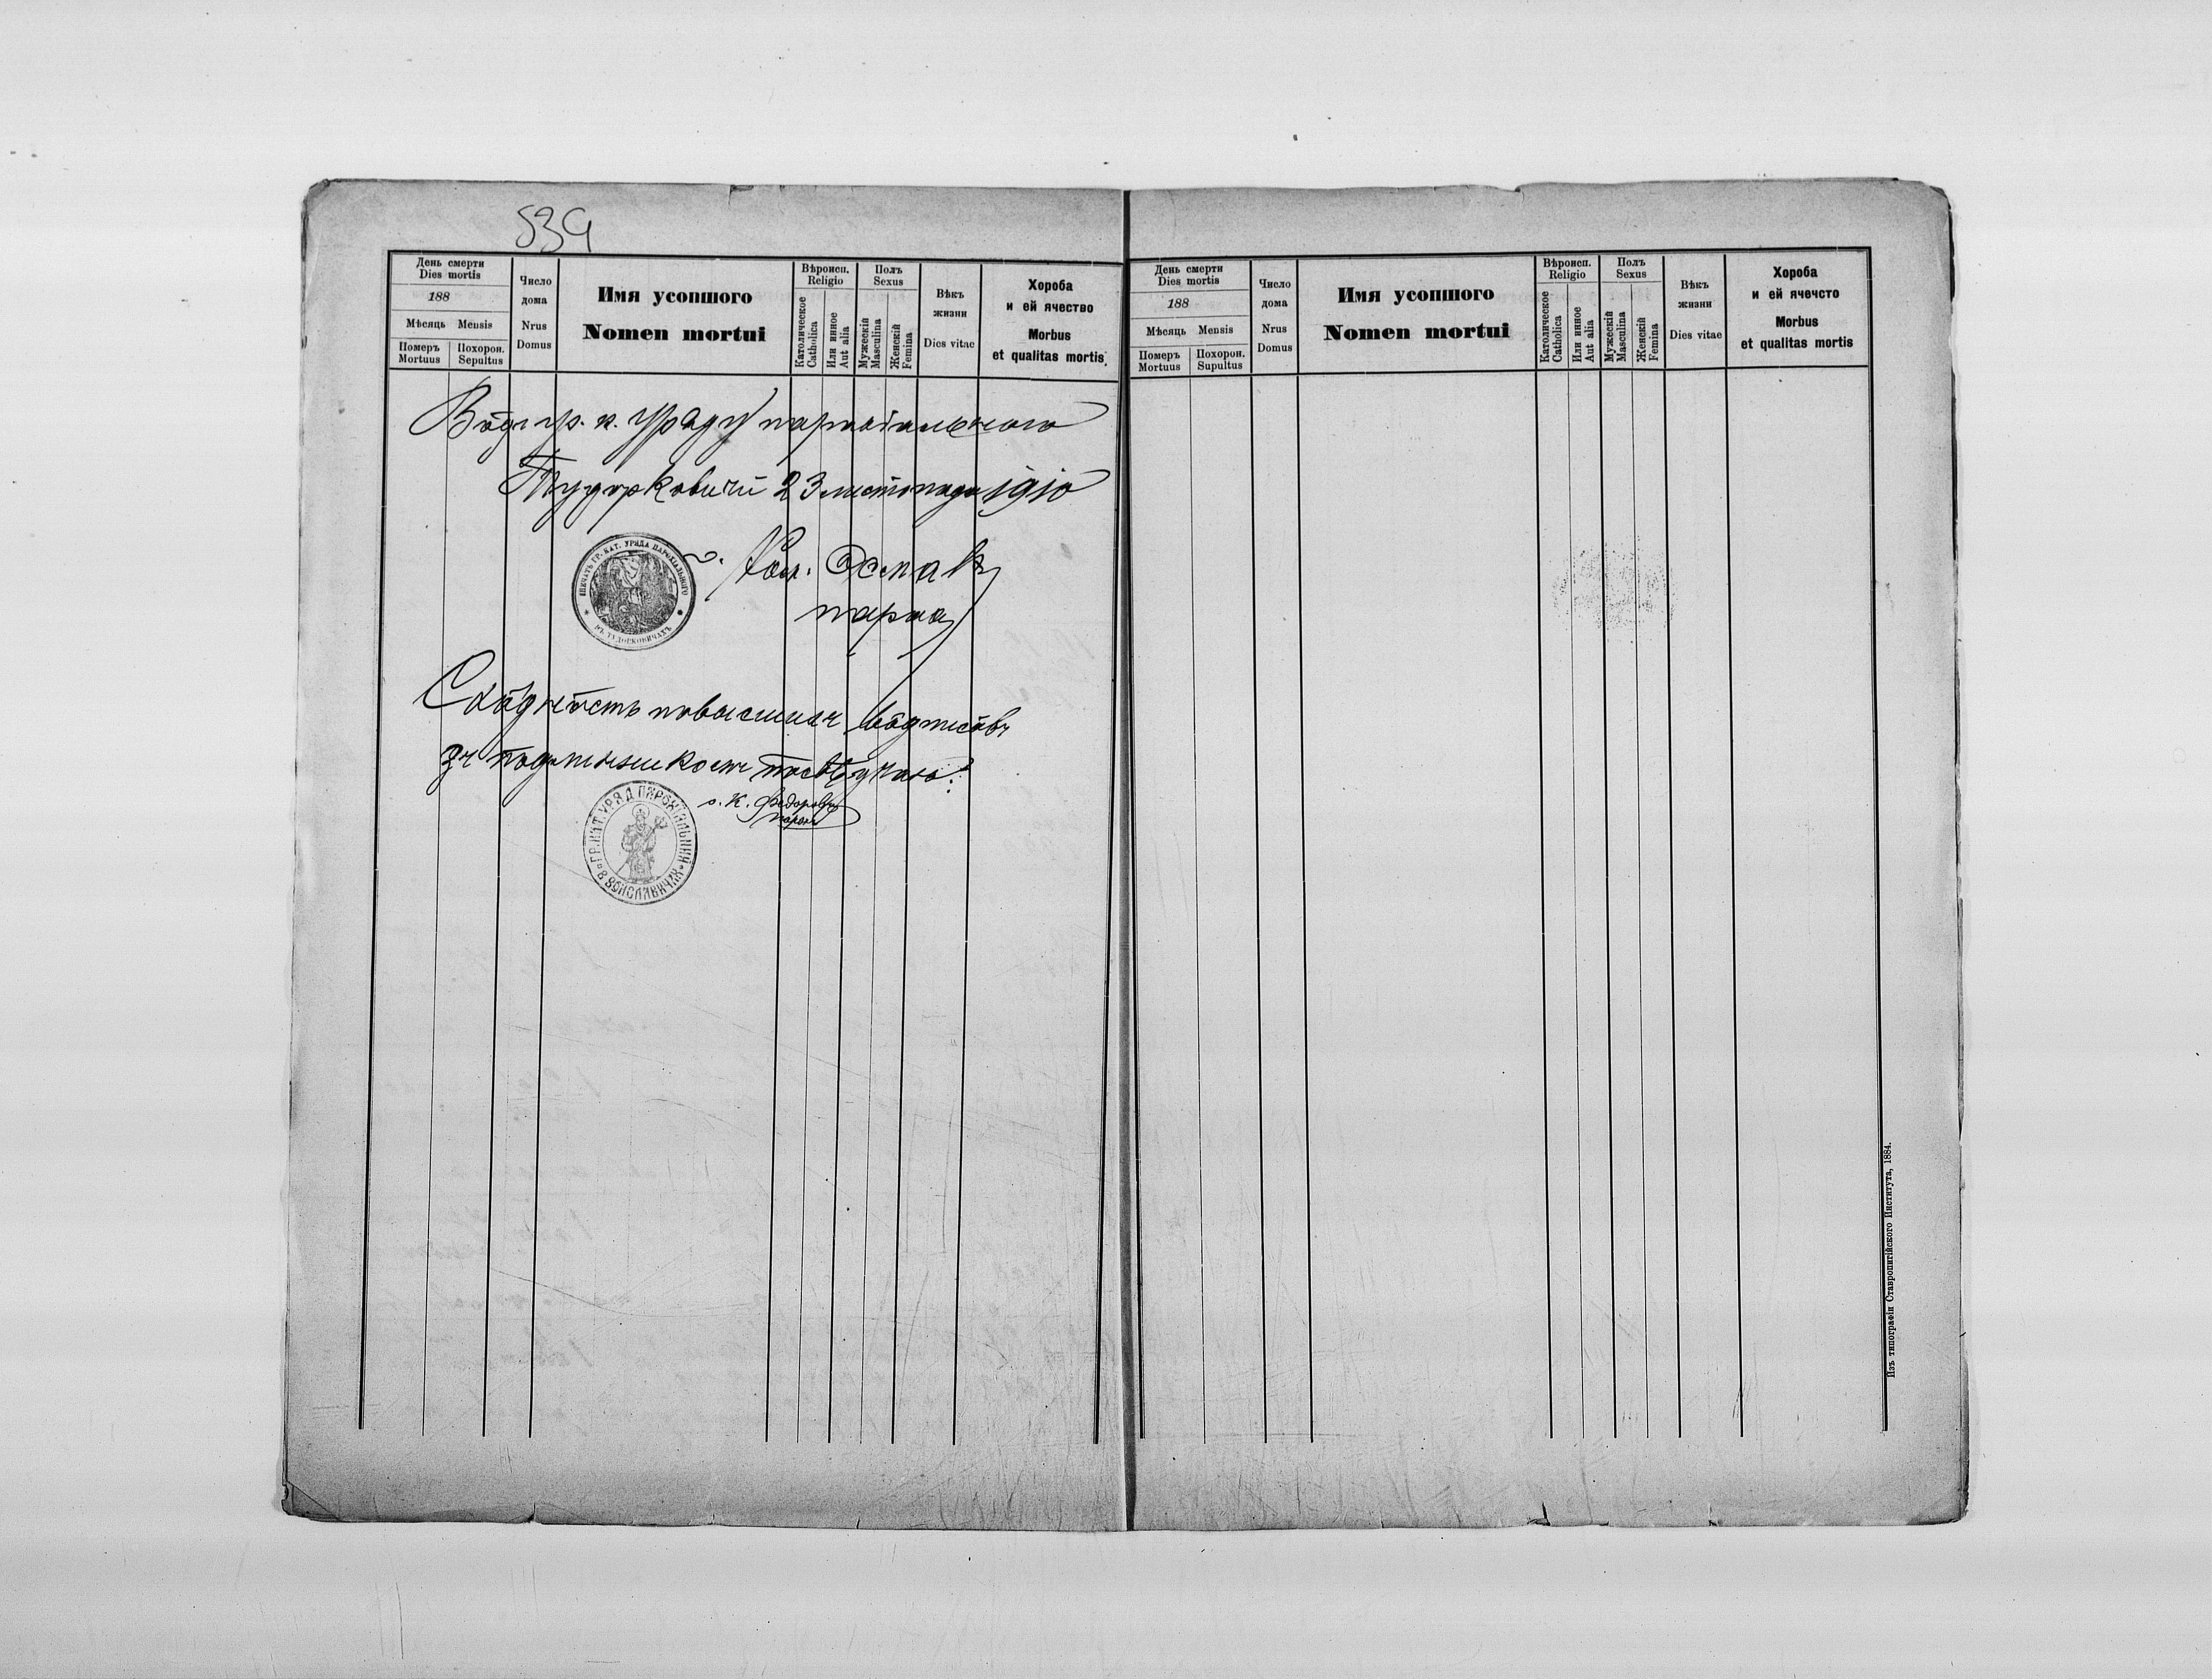 539
День смерти
Dies mortis
188
Мѣсяць Mensis
Померъ Mortuus
Похорон. Sepultus
Число дома
Nrus Domus
Имя усопшого
Nomen mortui
Вѣроисп.
Religio
Католическое Catholica
Или инное Aut alia
Полъ
Sexus
Мужескій Masculina
Женскій Femina
Вѣкъ жизни
Dies vitae
Хороба
и ей ячество
Morbus
et qualitas mortis.
Вôдъ гр. к. Уряду парохіального
Тудорковичи 23 листопада 1910
Осмак
парох
ПЕЧАТЬ ГР. КАТ. УРЯДА ПАРОХІАЛЬНОГО
ВЪ ТУДОРКОВИЧАХЪ
повысших вôдписôвъ
зъ посвѣдчаю:
о. К. Федорович
парох
ГР. КАТ. УРЯД ПАРОХІЯЛЬНИЙ
В ВОИСЛАВИЧАХ
День смерти
Dies mortis
188
Мѣсяць Mensis
Померъ Mortuus
Похорон. Supultus
Число дома
Nrus Domus
Имя усопшого
Nomen mortui
Вѣроисп.
Religio
Католическое Catholica
Или инное Aut alia
Полъ
Sexus
Мужескій Masculina
Женскій Femina
Вѣкъ жизни
Dies vitae
Хороба
и ей ячечсто
Morbus
et qualitas mortis
Изъ типографіи Ставропигійского Института, 1884.